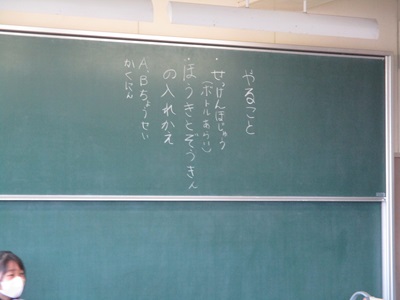 やること
・せっけんほじゅう
(ボトルあらい)
・ほうきとぞうきん
の入れかえ
A、Bちょうせい
かくにん